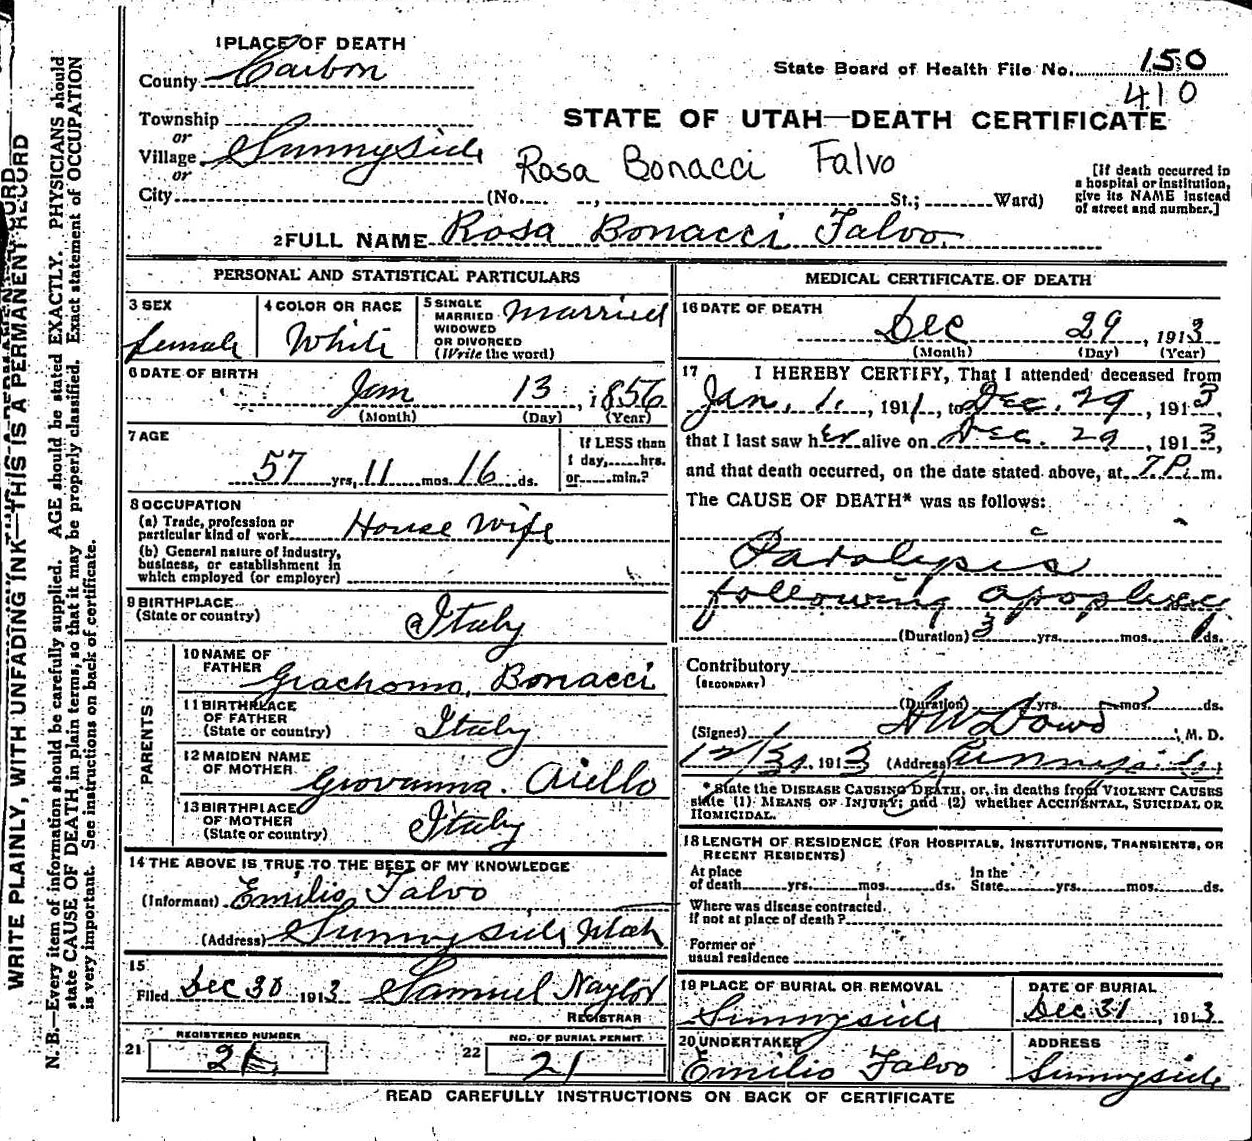 WRITE PLAINLY, WITH UNFADING INK—THIS IS A PERMANENT RECORD
N. B.—Every item of information should be carefully supplied. AGE should be stated EXACTLY. PHYSICIANS should
state CAUSE OF DEATH in plain terms, so that it may be properly classified. Exact statement of OCCUPATION
is very important. See instructions on back of certificate.
1 PLACE OF DEATH
County Carbon
State Board of Health File No. 150
410
Township
or
Village Sunnyside
or
City (No. , St.; Ward)
STATE OF UTAH—DEATH CERTIFICATE
Rosa Bonacci Falvo
[If death occurred in
a hospital or institution,
give its NAME instead
of street and number.]
2 FULL NAME Rosa Bonacci Falvo
PERSONAL AND STATISTICAL PARTICULARS
3 SEX
female
4 COLOR OR RACE
White
5 SINGLE
MARRIED
WIDOWED
OR DIVORCED
(Write the word)
Married
6 DATE OF BIRTH
Jan 13, 1856
(Month) (Day) (Year)
7 AGE
57 yrs. 11 mos. 16 ds.
If LESS than
1 day, hrs.
or min.?
8 OCCUPATION
(a) Trade, profession or
particular kind of work House Wife
(b) General nature of industry,
business, or establishment in
which employed (or employer)
9 BIRTHPLACE
(State or country)
Italy
PARENTS
10 NAME OF
FATHER
Giachomo, Bonacci
11 BIRTHPLACE
OF FATHER
(State or country)
Italy
12 MAIDEN NAME
OF MOTHER
Giovanna. Aiello
13 BIRTHPLACE
OF MOTHER
(State or country)
Italy
14 THE ABOVE IS TRUE TO THE BEST OF MY KNOWLEDGE
(Informant) Emilio Falvo
(Address) Sunnyside Utah
15
Filed Dec 30 1913 Samuel Naylor
REGISTRAR
21 REGISTERED NUMBER
21
22 NO. OF BURIAL PERMIT
21
MEDICAL CERTIFICATE OF DEATH
16 DATE OF DEATH
Dec 29, 1913
(Month) (Day) (Year)
17 I HEREBY CERTIFY, That I attended deceased from
Jan. 1., 1911, to Dec. 29, 1913,
that I last saw her alive on Dec. 29, 1913,
and that death occurred, on the date stated above, at 7 P. m.
The CAUSE OF DEATH* was as follows:
Paralysis
following apoplexy
(Duration) 3 yrs. mos. ds.
Contributory
(SECONDARY)
(Duration) yrs. mos. ds.
(Signed) Dowd, M. D.
1913 (Address) Sunnyside
*State the DISEASE CAUSING DEATH, or, in deaths from VIOLENT CAUSES
state (1) MEANS OF INJURY; and (2) whether ACCIDENTAL, SUICIDAL OR
HOMICIDAL.
18 LENGTH OF RESIDENCE (FOR HOSPITALS, INSTITUTIONS, TRANSIENTS, OR
RECENT RESIDENTS)
At place
of death yrs. mos. ds.
In the
State yrs. mos. ds.
Where was disease contracted,
if not at place of death?
Former or
usual residence
19 PLACE OF BURIAL OR REMOVAL
Sunnyside
DATE OF BURIAL
Dec 31, 1913
20 UNDERTAKER
Emilio Falvo
ADDRESS
Sunnyside
READ CAREFULLY INSTRUCTIONS ON BACK OF CERTIFICATE